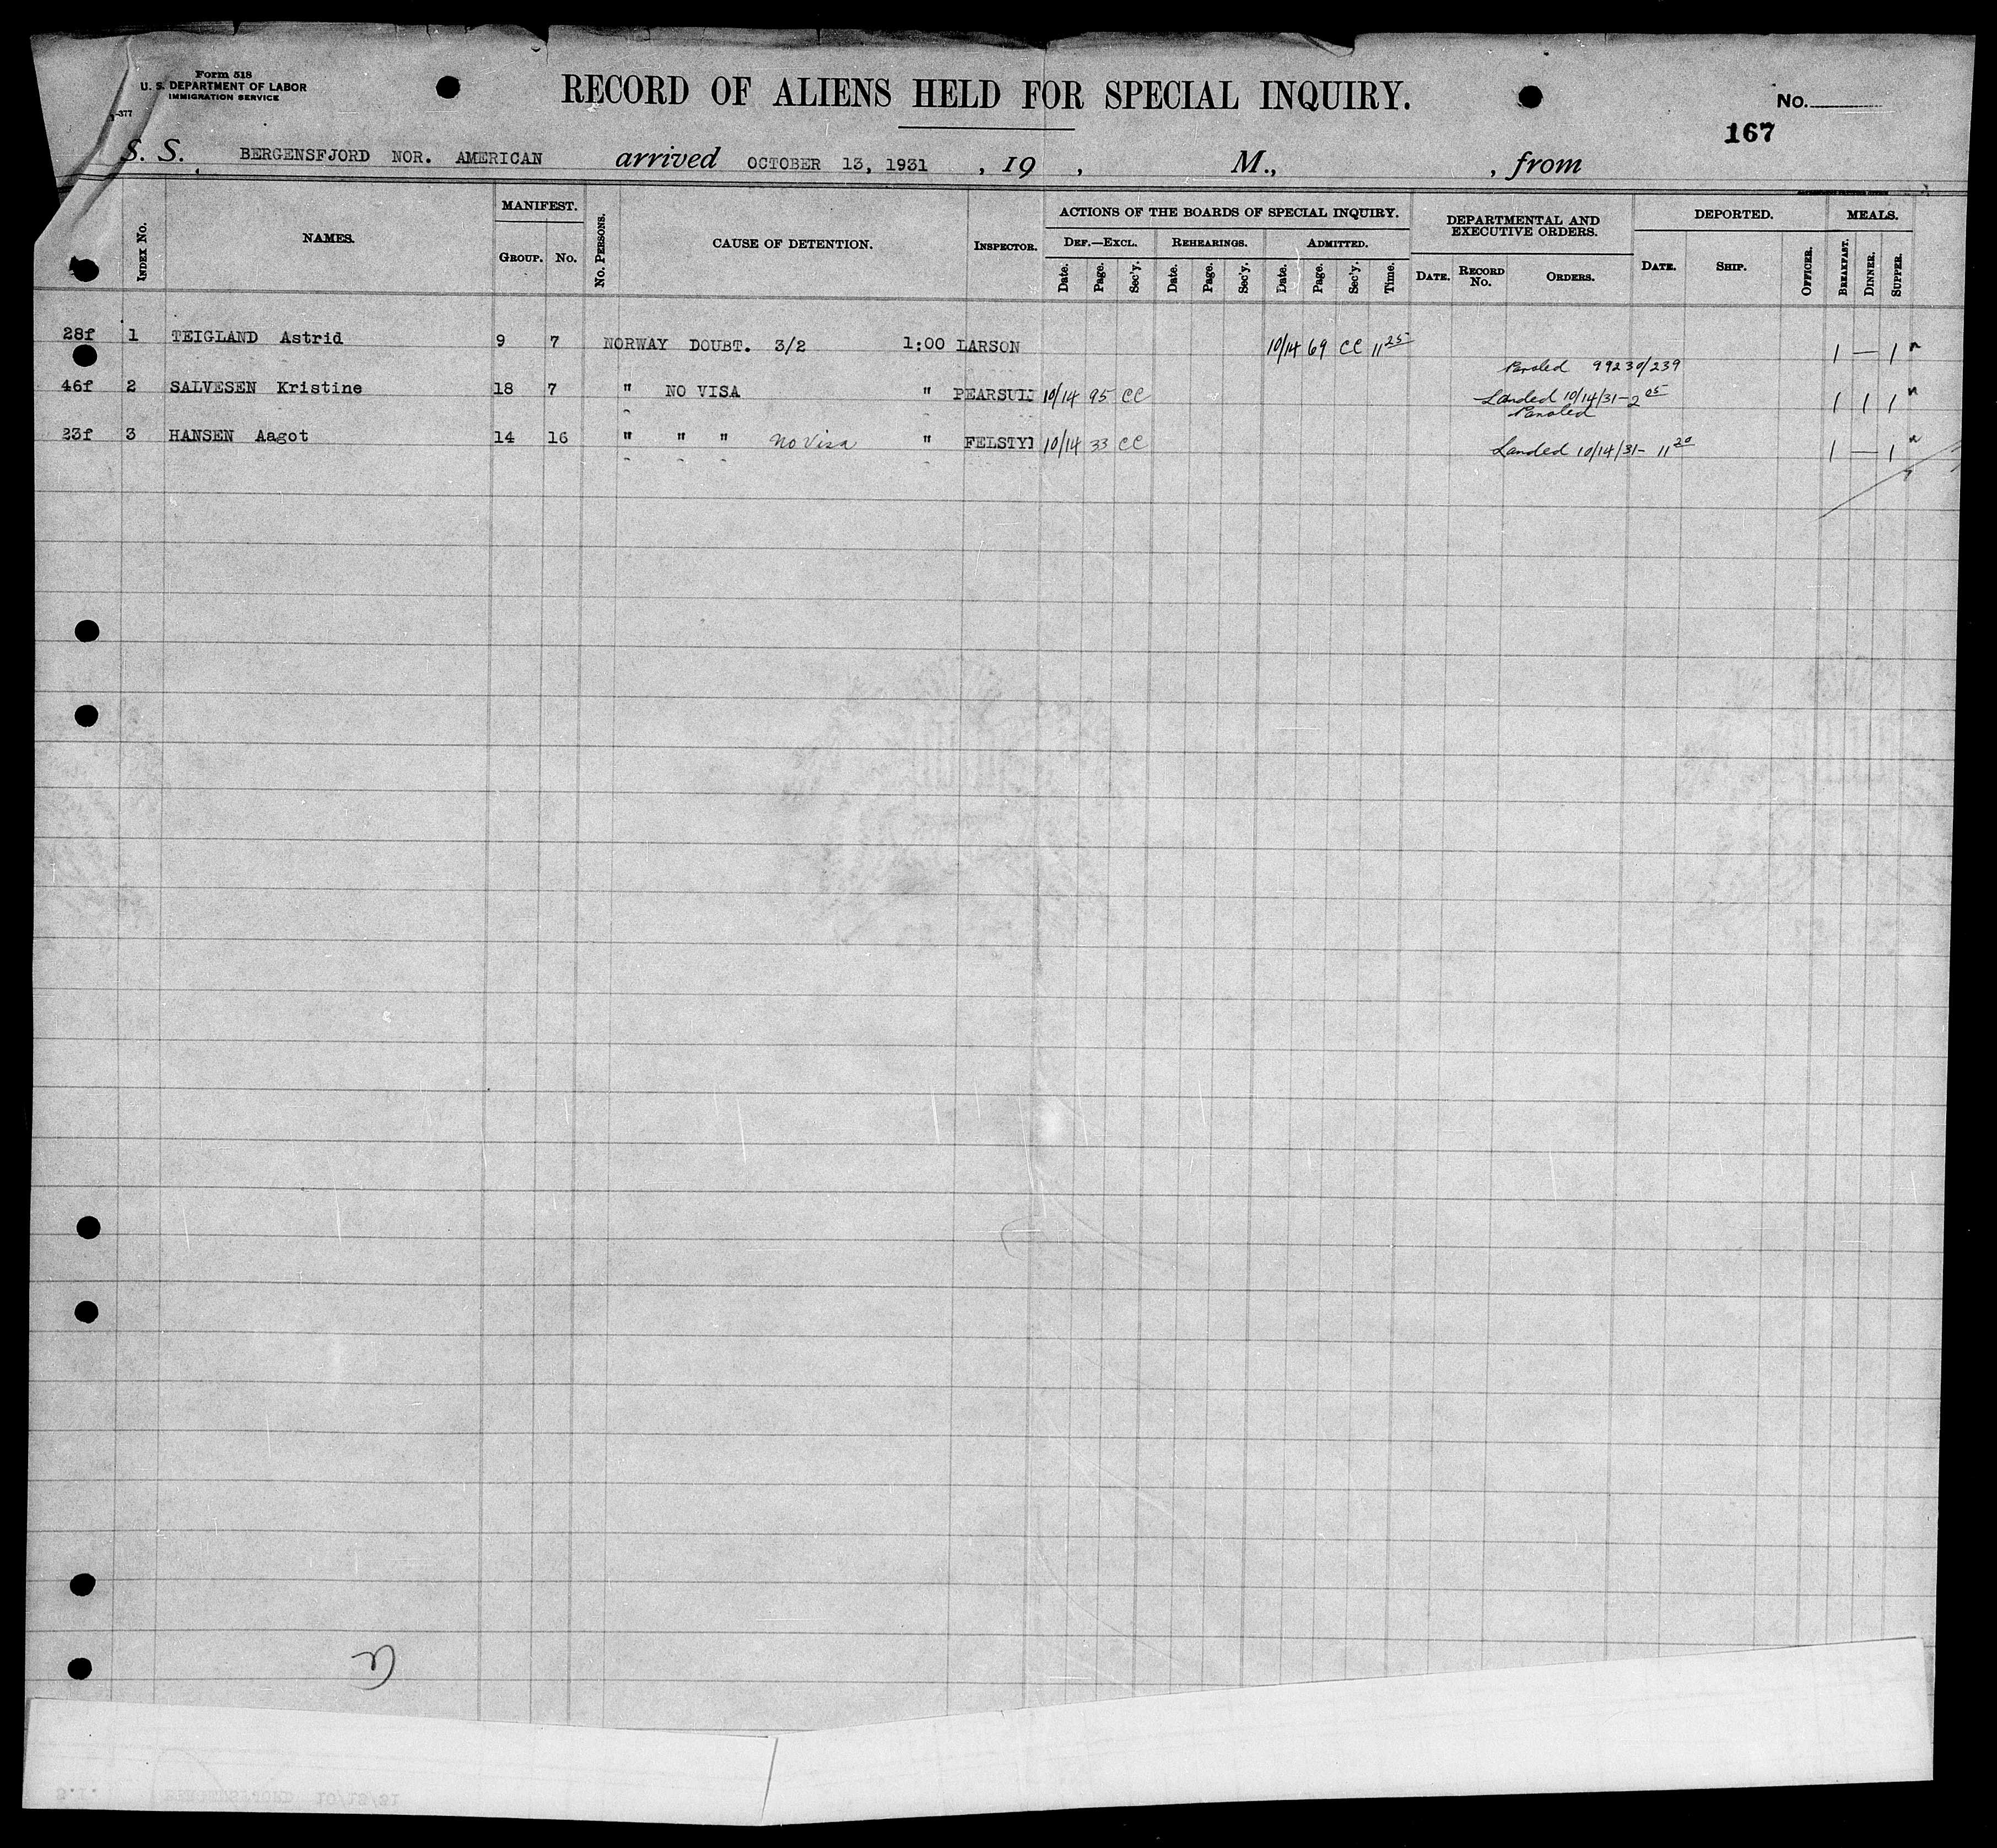 Form 518
U. S. DEPARTMENT OF LABOR
IMMIGRATION SERVICE
RECORD OF ALIENS HELD FOR SPECIAL INQUIRY.
No.
167
S. S. BERGENSFJORD NOR. AMERICAN arrived OCTOBER 13, 1931 , 19 , M., , from
Index No.
NAMES.
MANIFEST.
Group. No.
No. Persons.
CAUSE OF DETENTION.
Inspector.
ACTIONS OF THE BOARDS OF SPECIAL INQUIRY.
Def.—Excl. Rehearings. Admitted.
Date. Page. Sec'y. Date. Page. Sec'y. Date. Page. Sec'y. Time.
DEPARTMENTAL AND
EXECUTIVE ORDERS.
Date. Record No. Orders.
DEPORTED.
Date. Ship.
Officer.
MEALS.
Breakfast. Dinner. Supper.
28f 1 TEIGLAND Astrid 9 7 NORWAY DOUBT. 3/2 1:00 LARSON 10/14 69 CC 11 25 1 — 1
Paroled 99230/239
46f 2 SALVESEN Kristine 18 7 " NO VISA " 10/14 95 CC Landed 10/14/31-2 05 1 1 1
Paroled
23f 3 HANSEN Aagot 14 16 " " " no Visa " 10/14 33 CC Landed 10/14/31- 11 20 1 — 1